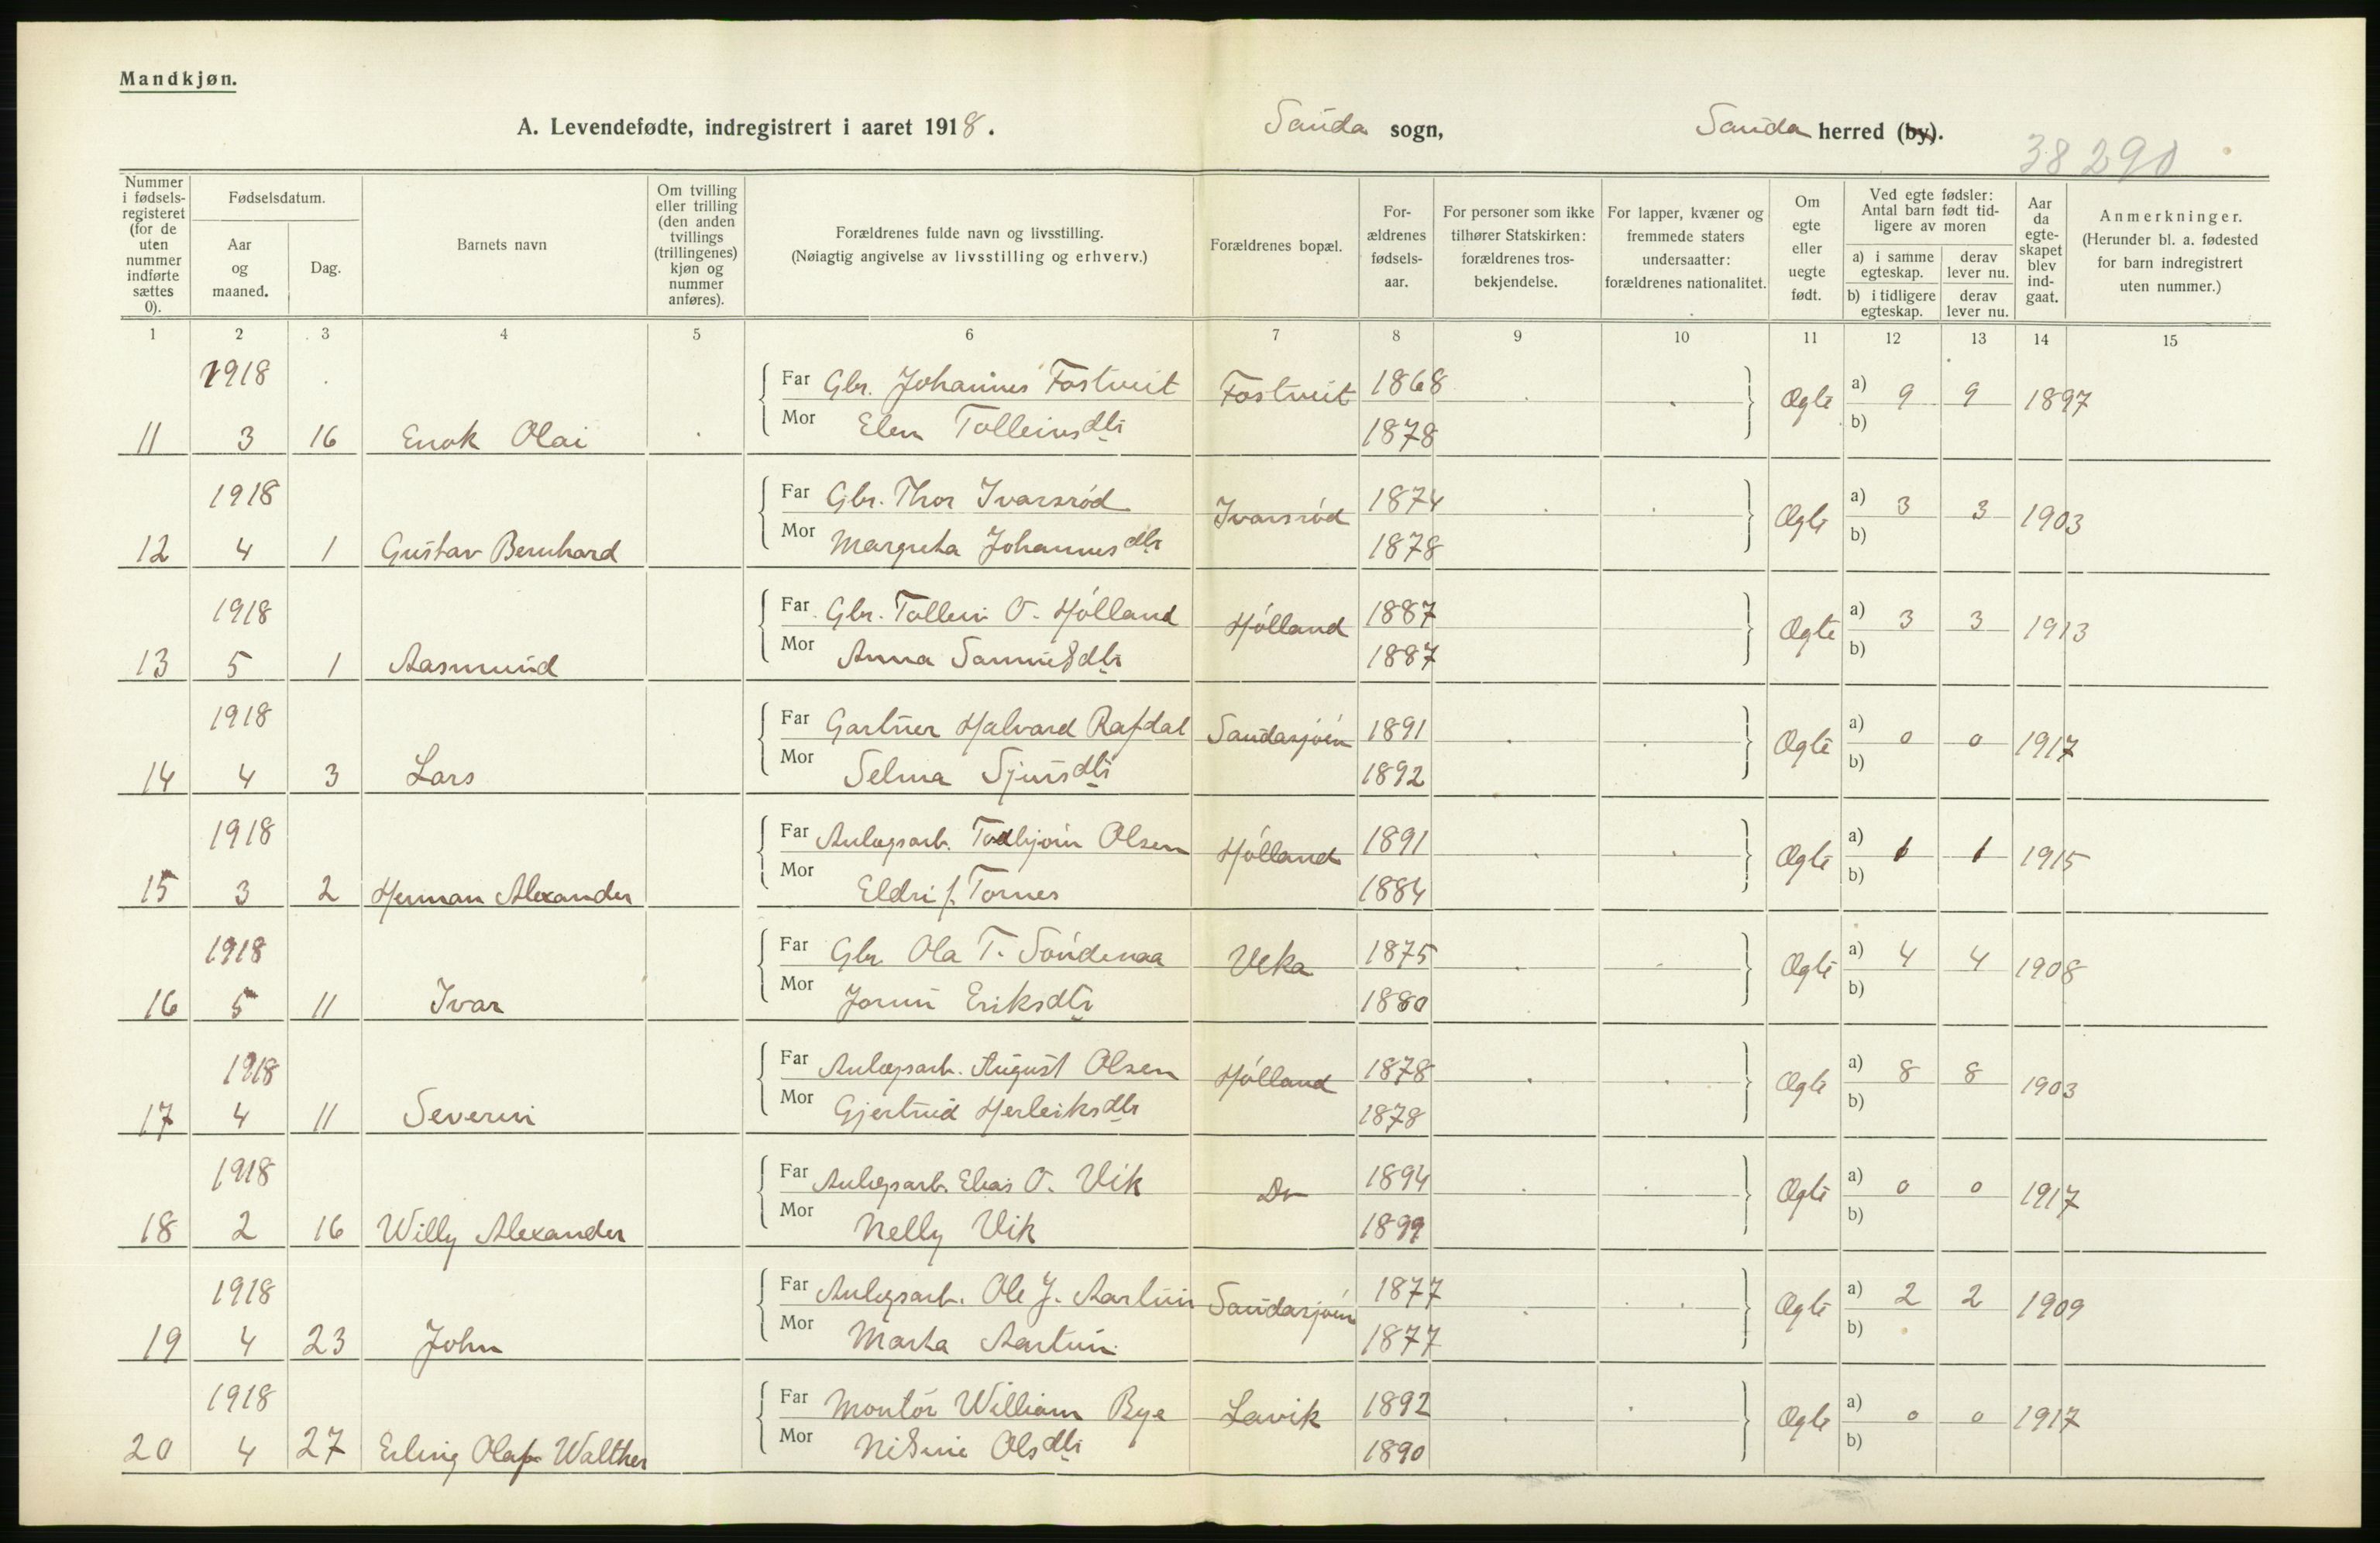 Mandkjøn.
A. Levendefødte, indregistrert i aaret 1918. Sauda sogn, Sauda herred (by).
38290
Nummer i fødselsregisteret (for de uten nummer indførte sættes 0). Fødselsdatum. Aar og maaned. Dag. Barnets navn Om tvilling eller trilling (den anden tvillings (trillingenes) kjøn og nummer anføres). Forældrenes fulde navn og livsstilling. (Nøiagtig angivelse av livsstilling og erhverv.) Forældrenes bopæl. Forældrenes fødselsaar. For personer som ikke tilhører Statskirken: forældrenes trosbekjendelse. For lapper, kvæner og fremmede staters undersaatter: forældrenes nationalitet. Om egte eller uegte født. Ved egte fødsler: Antal barn født tidligere av moren a) i samme egteskap. derav lever nu. b) i tidligere egteskap. derav lever nu. Aar da egteskapet blev indgaat. Anmerkninger. (Herunder bl. a. fødested for barn indregistrert uten nummer.)
1 2 3 4 5 6 7 8 9 10 11 12 13 14 15
1918 Far Gbr. Johannes Fostveit Fostveit 1868 Ægte a) 9 9 1897
11 3 16 Enok Olai Mor Elen Tolleivsdtr 1878 b)
1918 Far Gbr. Thor Ivarsrød Ivarsrød 1874 Ægte a) 3 3 1903
12 4 1 Gustav Bernhard Mor Margreta Johannesdtr 1878 b)
1918 Far Gbr. Tolleiv O. Hølland Hølland 1887 Ægte a) 3 3 1913
13 5 1 Aasmund Mor Anna Samuelsdtr 1887 b)
1918 Far Gartner Halvard Rafdal Saudasjøen 1891 Ægte a) 0 0 1917
14 4 3 Lars Mor Selma Sjursdtr 1892 b)
1918 Far Anlegsarb. Torbjørn Olsen Hølland 1891 Ægte a) 1 1 1915
15 3 2 Herman Alexander Mor Eldri f. Tornes 1884 b)
1918 Far Gbr Ola T. Søndenaa Veka 1875 Ægte a) 4 4 1908
16 5 11 Ivar Mor Joruni Eriksdtr 1880 b)
1918 Far Anlegsarb. August Olsen Hølland 1878 Ægte a) 8 8 1903
17 4 11 Severin Mor Gjertrud Herleiksdtr 1878 b)
1918 Far Anlegsarb. Elias O. Vik Do 1894 Ægte a) 0 0 1917
18 2 16 Willy Alexander Mor Nelly Vik 1899 b)
1918 Far Anlegsarb. Ole J. Aartun Saudasjøen 1877 Ægte a) 2 2 1909
19 4 23 John Mor Marta Aartun 1877 b)
1918 Far Montør William Bye Løvik 1892 Ægte a) 0 0 1917
20 4 27 Erling Olaf Walther Mor Olsdtr 1890 b)